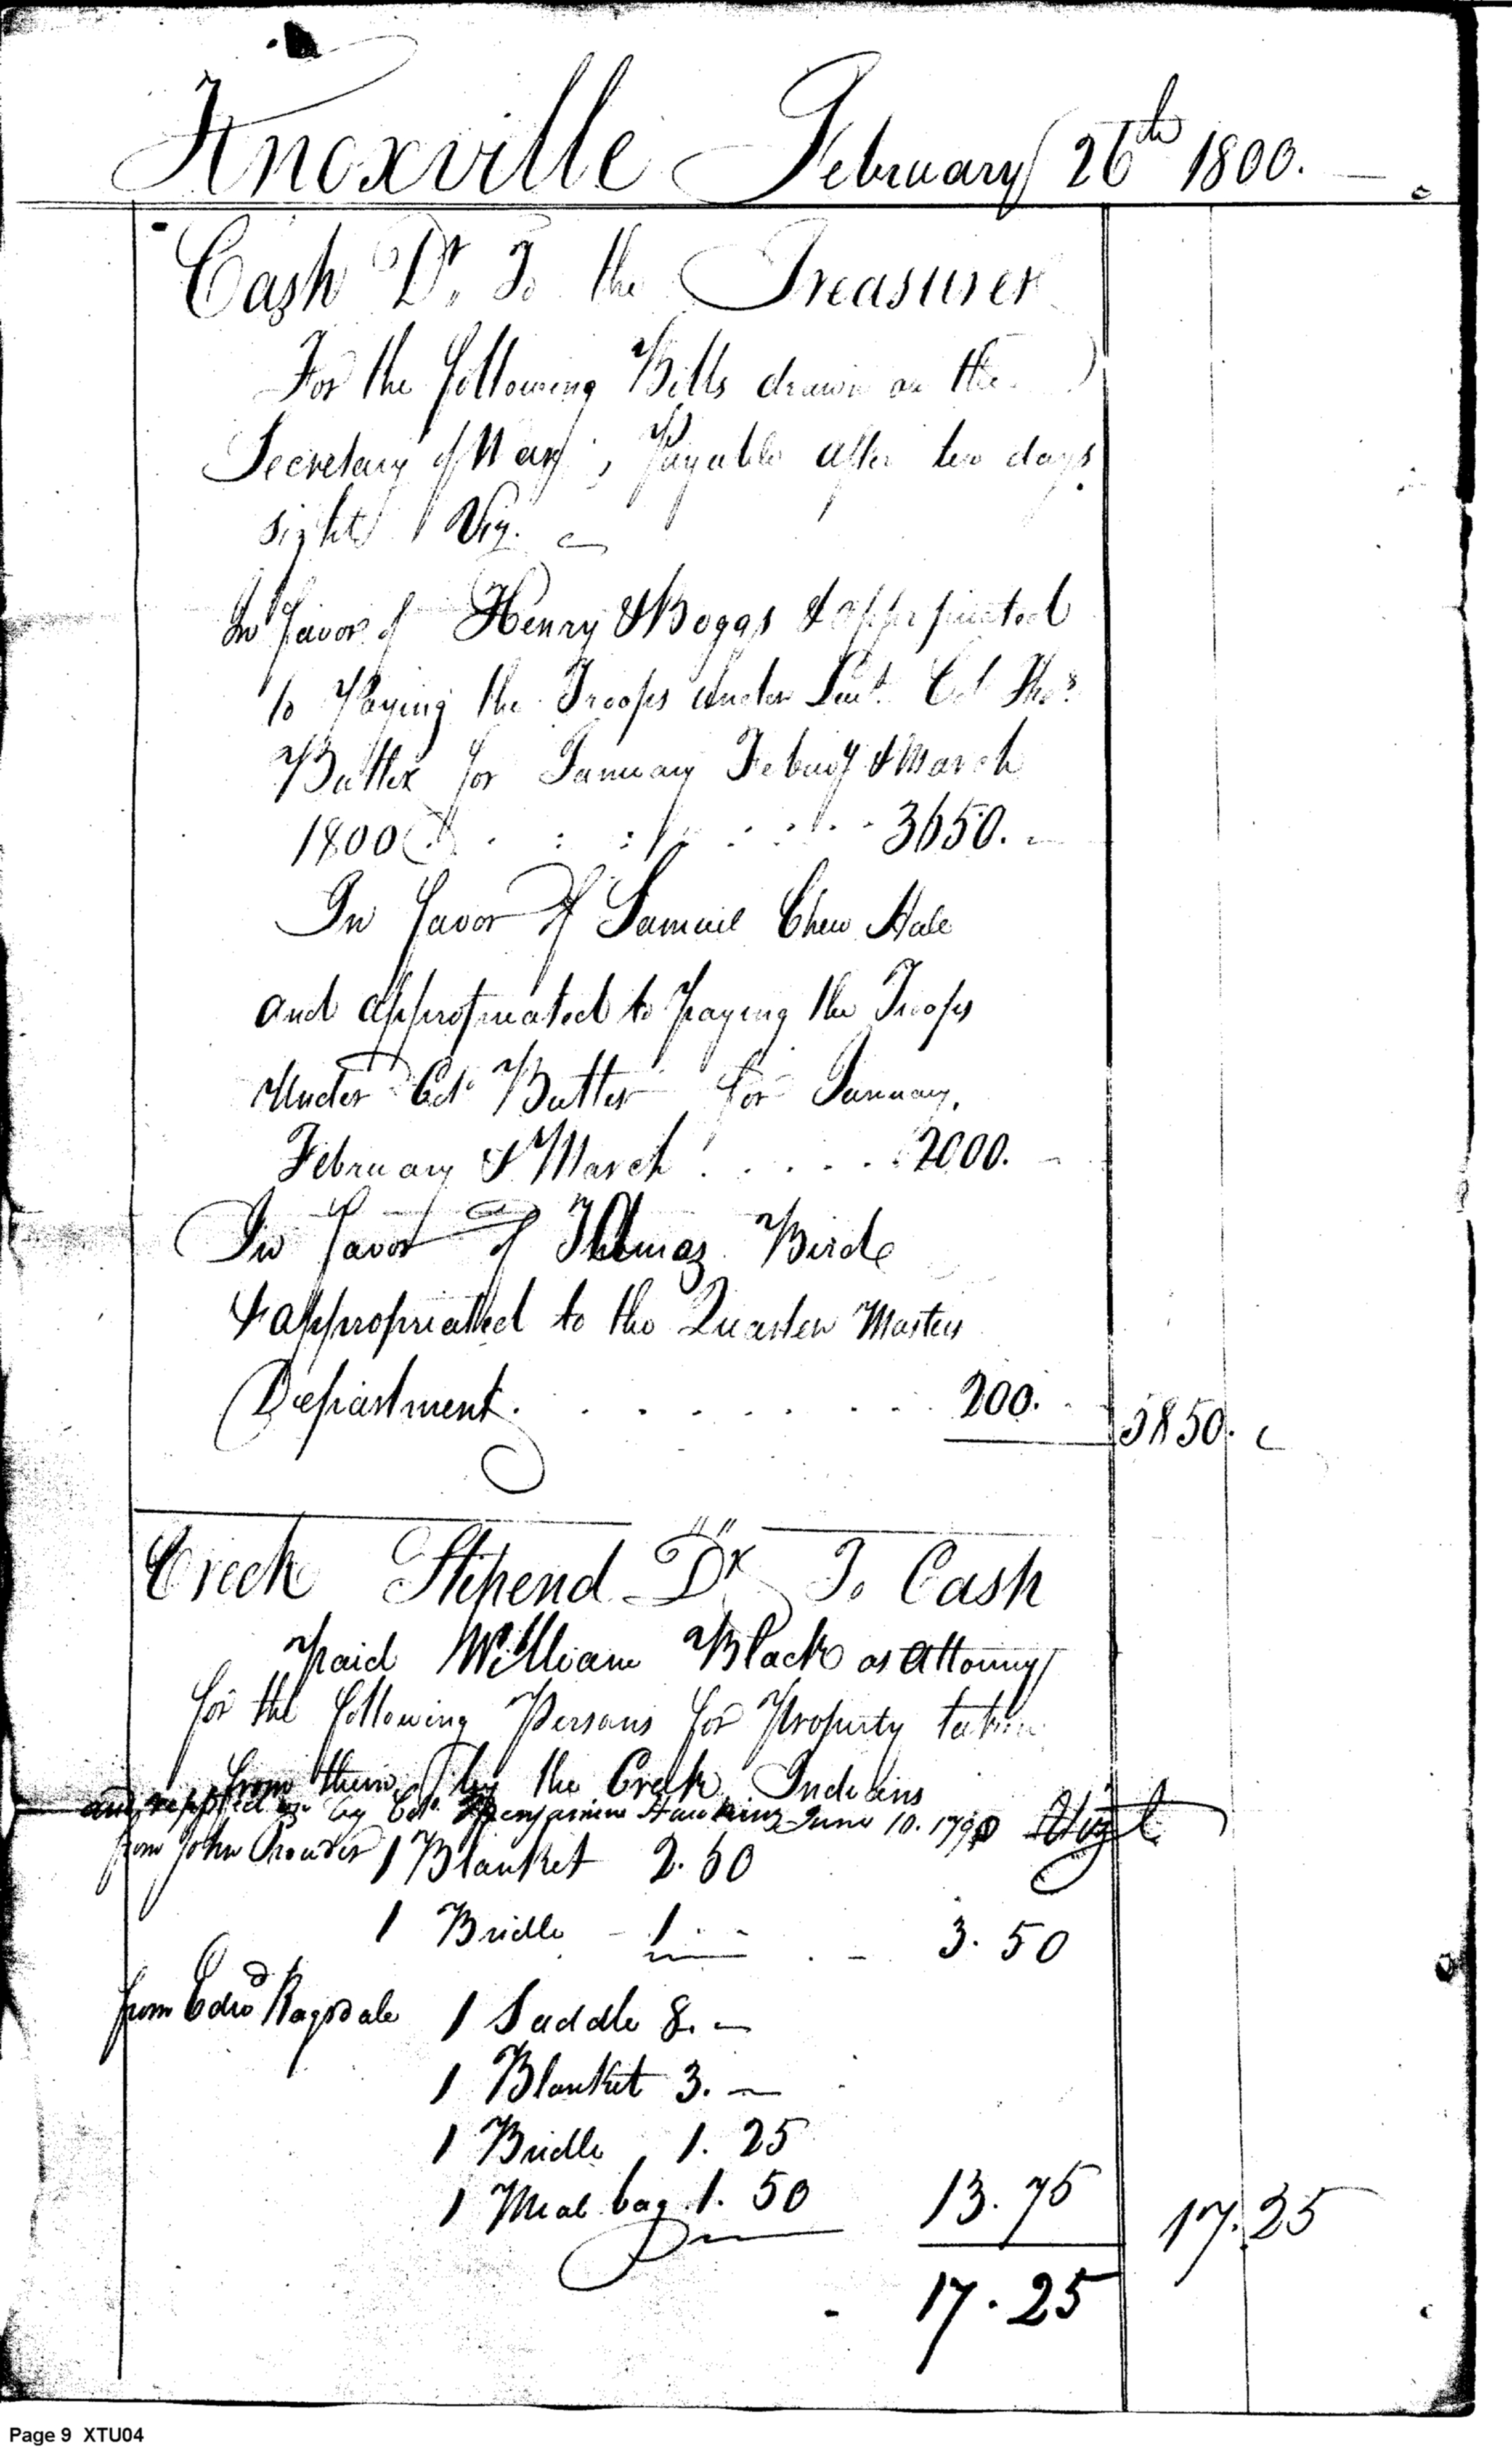 Knoxville February 26th 1800.
Cash Dr. To the Treasurer
For the following Bills drawn on the
Secretary of War, Payable after two days
sight Viz.
In favor of Henry & Boggs & appropriated
to Paying the Troops under Lieut. Col. Thos.
Butler for January Febuay & March
1800 3650.
In favor of Samuel Chew Hale
and appropriated to paying the Troops
Under Col. Butler for January,
February & March 2000.
In favor of Thomas Birde
& appropriated to the Quarter Masters
Department. 200. 5850.
Creek Stipend Dr. To Cash
paid William Black as Attorney
for the following Persons for Property taken
from them by the Creek Indians
and by Col. Benjamin Hawkins June 10. 179 Viz
from John 1 Blanket 2.50
1 Bridle 1. 3.50
from Edwd Ragsdale 1 Saddle 8.
1 Blanket 3.
1 Bridle 1.25
1 Meal bag 1.50 13.75 17.25
17.25
Page 9 XTU04